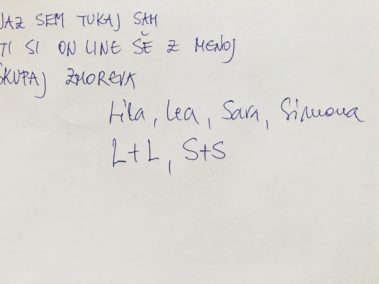 JAZ SEM TUKAJ SAM
TI SI ON LINE ŠE Z MENOJ
SKUPAJ ZMOREVA
Lila, Lea, Sara, Simona
L+L, S+S